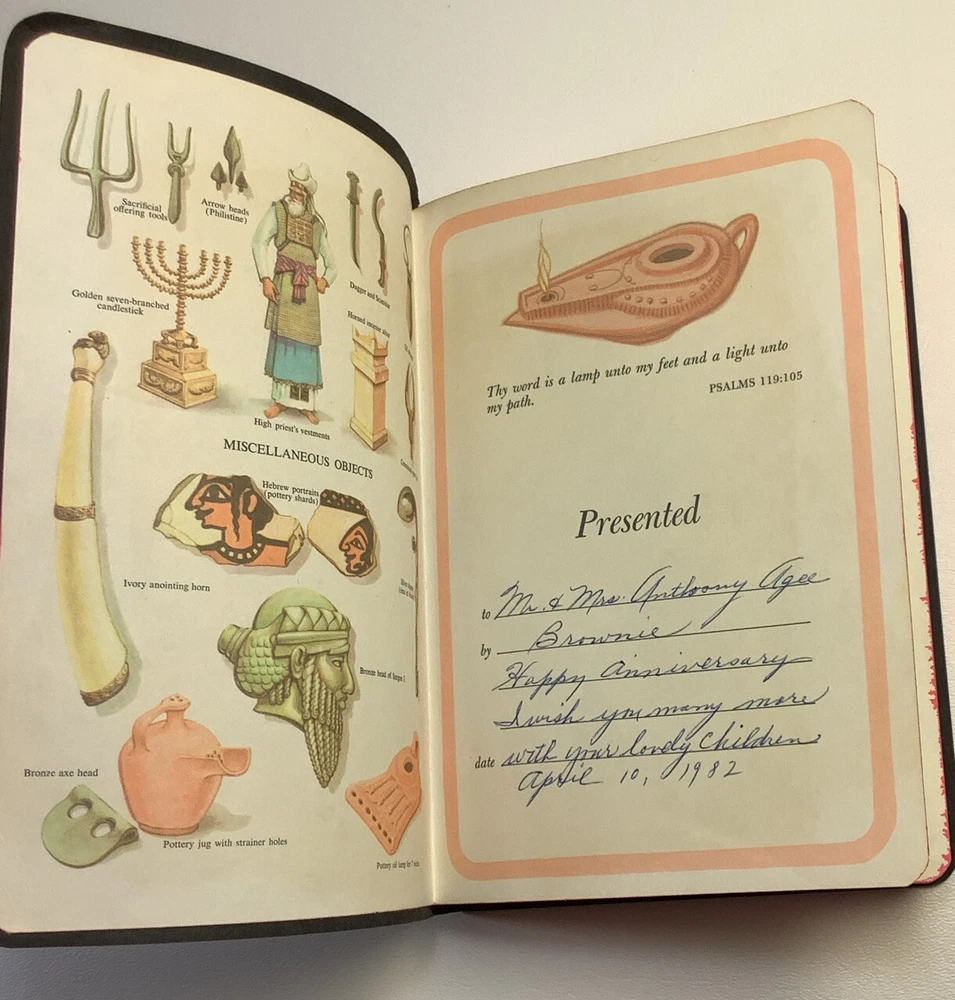 Sacrificial
offering tools
Arrow heads
(Philistine)
Golden seven-branched
candlestick
Dagger and
Horned incense altar
High priest's vestments
MISCELLANEOUS OBJECTS
Hebrew portraits
(pottery shards)
Ivory anointing horn
Bronze head of Sargon I
Bronze axe head
Pottery jug with strainer holes
Pottery oil lamp for 7
Thy word is a lamp unto my feet and a light unto
my path.
PSALMS 119:105
Presented
to Mr. & Mrs. Anthoony Agee
by Brownie
Happy Anniversary
I wish you many more
date with your lovely Children
April 10, 1982